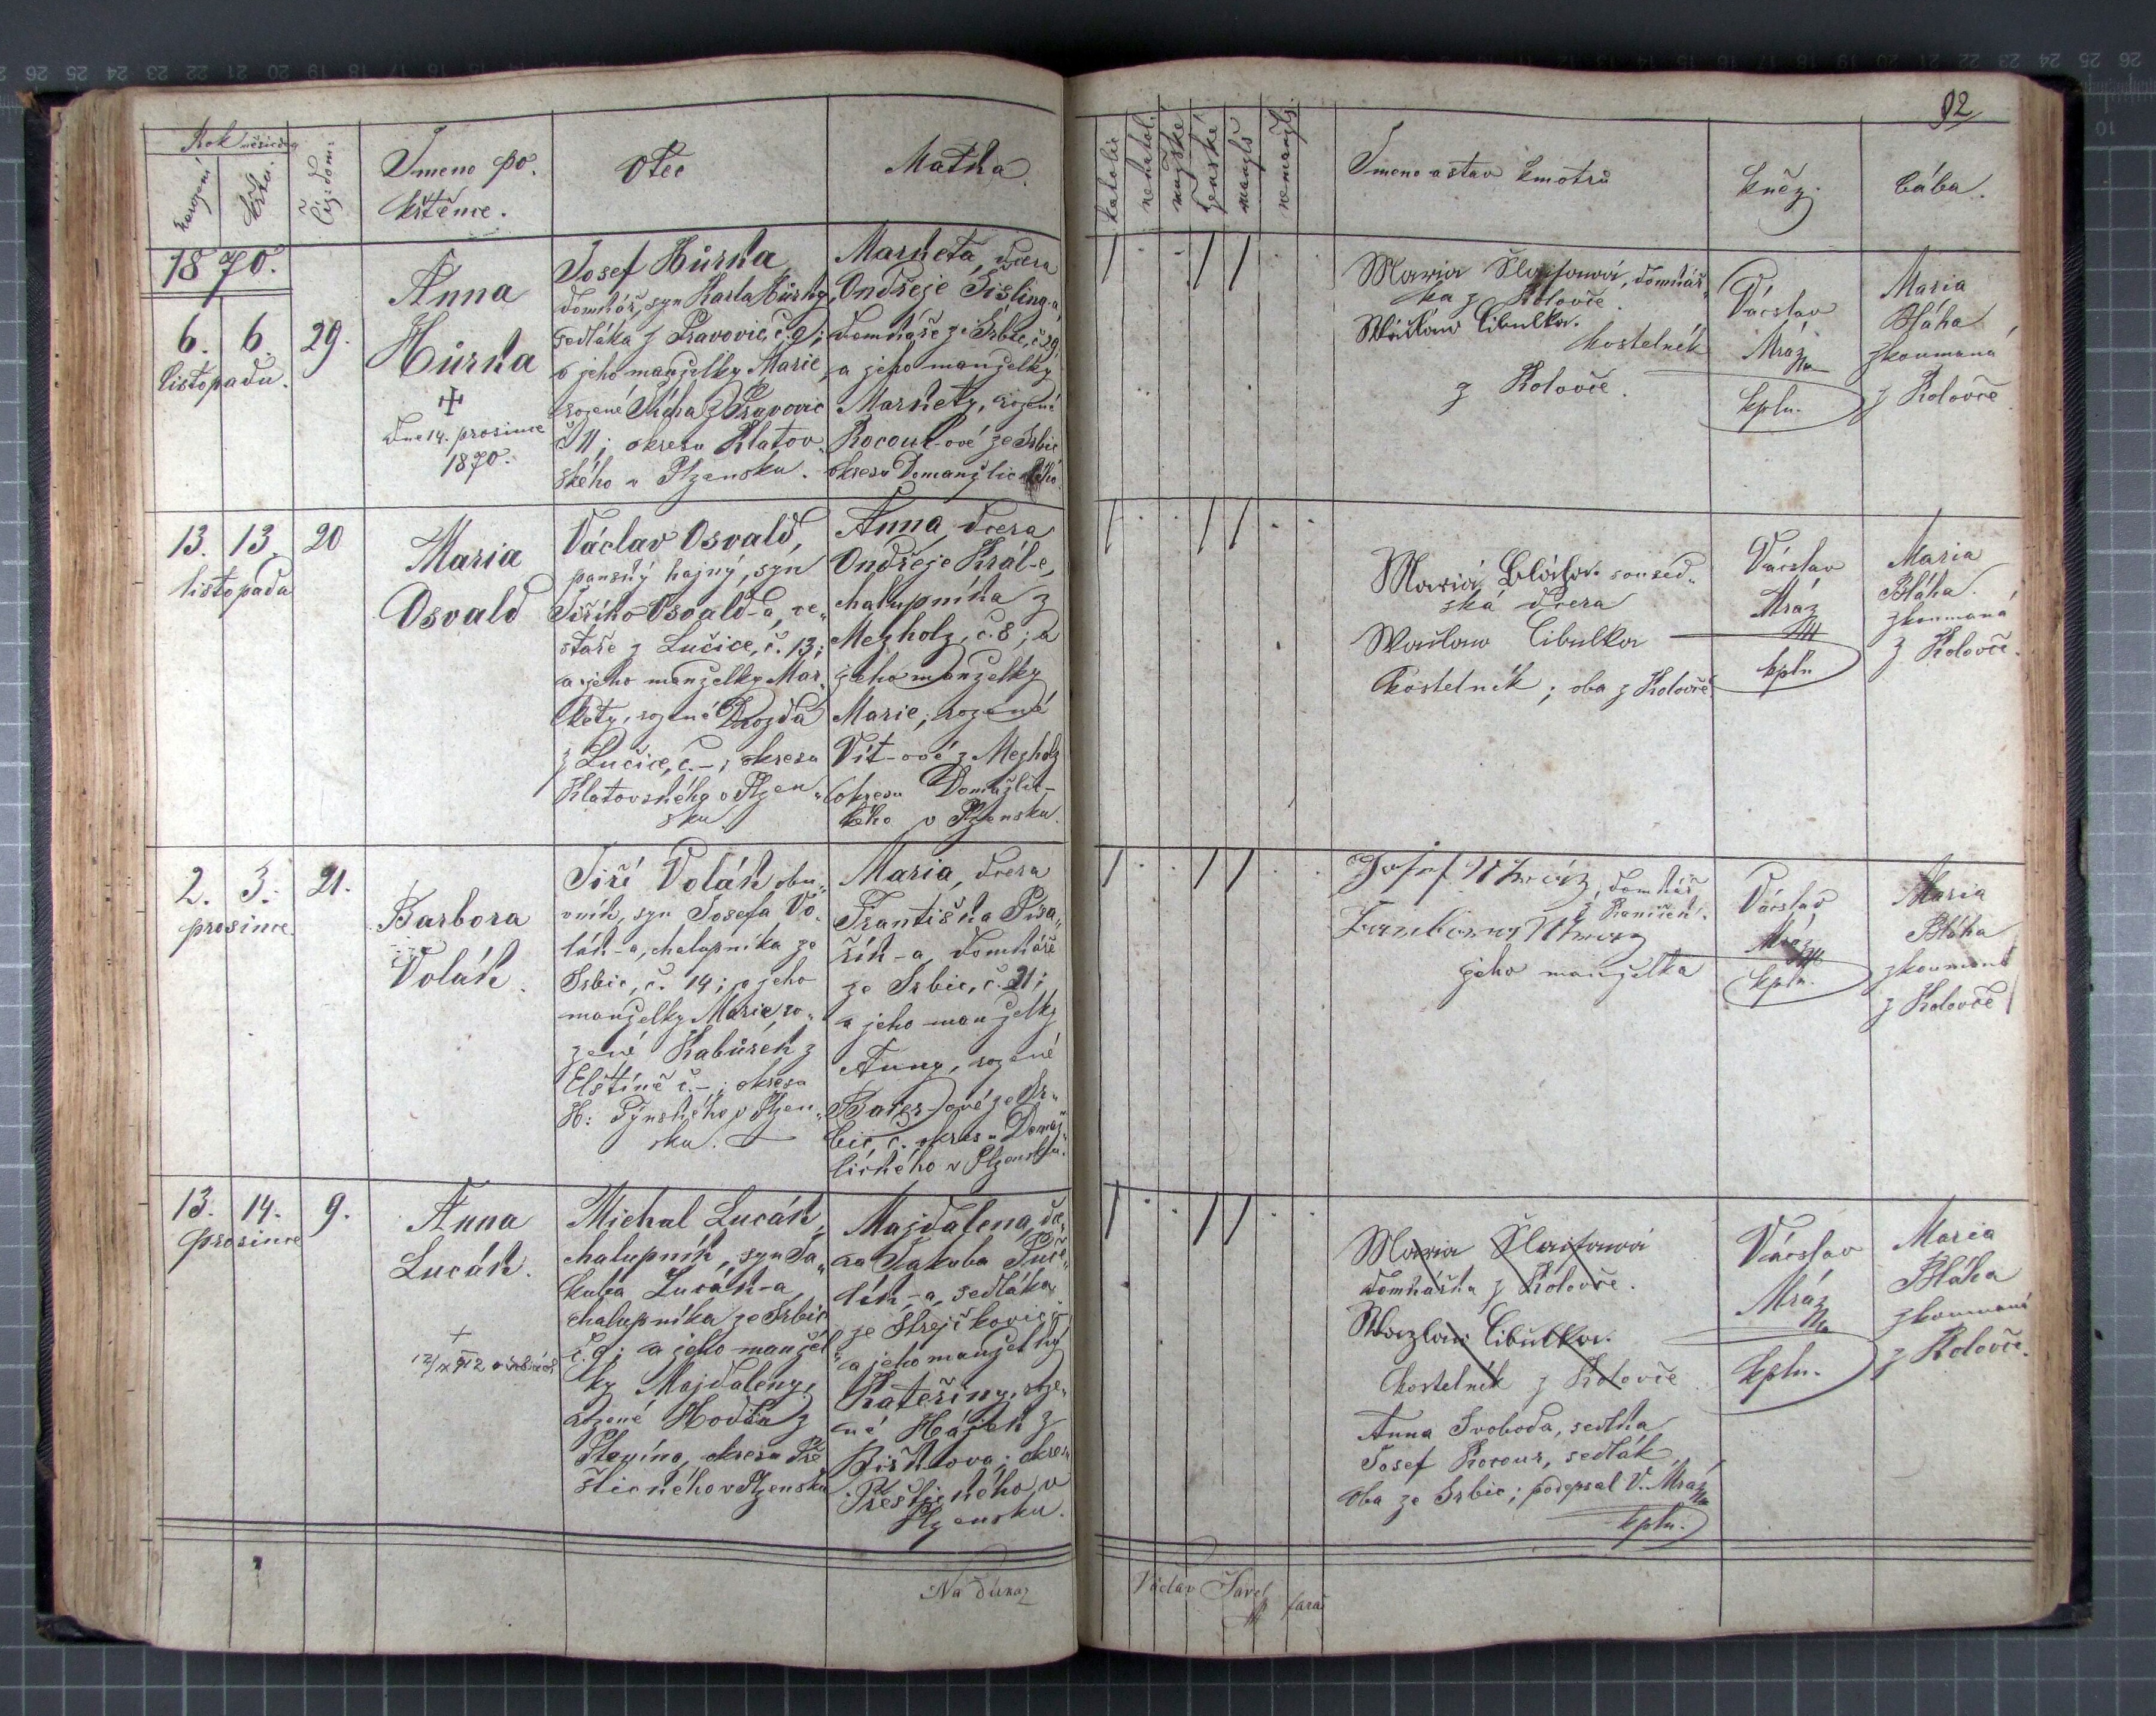 92
Rok měsíc den
narození
křtu
Čís: dom:
Jmeno po-
křtěnce.
Otec
Matka.
katolic
nekatol.
mužské
ženské
manžels
nemanžels
Jmeno a stav kmotrů
kněz.
bába.
1870.
6. 6. 29.
listopadu.
Anna
Hůrka
✝
dne 14. prosince
1870.
Josef Hůrka,
domkář, syn Karla Hůrky,
sedláka z Pravovic, č. 9;
a jeho manželky Marie,
rozené z Pravovic
č 11; okresu Klatov-
ského v Plzensku.
Markéta, dcera
Ondřeje Šisling-a,
domkáře ze Srbic, č. 29,
a jeho manželky
Markety, rozené
Kocour-ové ze Srbic
okresu Domažlického
Maria domkář-
ka z Kolovče.
Cibulka.
kostelník
z Kolovče.
Václav
Mráz
kpln.
Maria
Bláha
zkoumaná
z Kolovče
13. 13. 20
listopada
Maria
Osvald
Václav Osvald,
panský hajný, syn
Jiřího Osvald-a, ce-
stáře z Lučice, č. 13;
a jeho manželky Mar-
kety, rozené Drozda
z Lučice, č. –; okresu
Klatovského v Plzen-
sku
Anna, dcera
Ondřeje Král-e,
chalupníka z
Mezholz, č. 8; a
jeho manželky
Marie; rozené
Vít-ové z Mezholz
okresu Domažlic-
kého v Plzensku.
Maria Bláha soused-
ská dcera
Cibulka
kostelník; oba z Kolovče
Václav
Mráz
kpln
Maria
Bláha.
zkoumaná
z Kolovče.
2. 3. 21.
prosince.
Barbora
Volák.
Jiří Volák obu-
vník, syn Josefa Vo-
lák-a, chalupníka ze
Srbic, č. 14; a jeho
manželky Marie, ro-
zené Kabůrek z
Elstině č. –; okresu
H: Týnského v Plzen-
sku.
Maria, dcera
Františka Písa-
řík-a, domkáře
ze Srbic, č. 21;
a jeho manželky
Anny, rozené
ové ze Sr-
bic, č. okresu Domaž-
lického v Plzensku.
Josef domkář
z
jeho manželka
Václav
Mráz
kpln.
Maria
Bláha
zkoumaná
z Kolovče
13. 14. 9.
prosince
Anna
Lucák.
+
Michal Lucák,
chalupník, syn Ja-
kuba Lucák-a,
chalupníka ze Srbic
č. 9; a jeho manžel-
ky Majdaleny,
rozené z
okresu Pře-
štického v Plzensku
Majdalena, dce-
ra Jakuba
lík-a, sedláka
ze Strejčkovic č–
a jeho manželky
Kateřiny, roze-
né Hájek z
okresu
Přeštického v
Plzensku.
Maria
domkářka z Kolovče.
Cibulka.
kostelník z Kolovče
Anna Svoboda, sedlka
Josef Kocour, sedlák,
oba ze Srbic; podepsal V. Mráz
kpln.
Václav
Mráz
kpln.
Maria
Bláha
zkoumaná
z Kolovče.
Na důkaz
Václav
farář